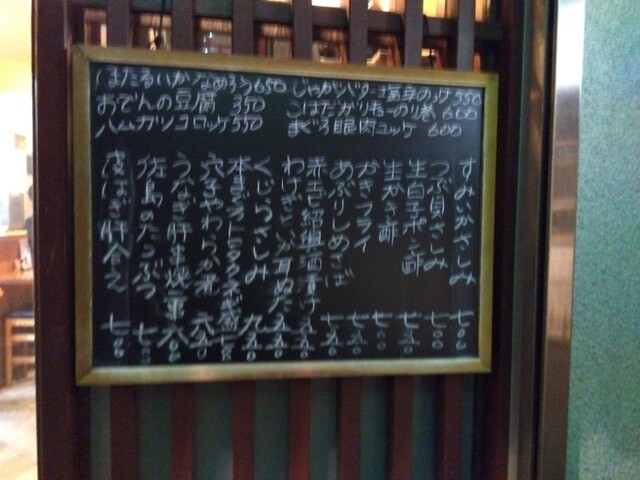 ほたるいかなめろう650
じゃがバター塩辛のっけ550
おでんの豆腐 350
こはだガリキューのり巻 600
ハムカツコロッケ550
まぐろ眼肉ユッケ 600
すみいかさしみ 七〇〇
つぶ貝さしみ 七〇〇
生白子ポン酢 七五〇
生かき酢 七〇〇
かきフライ 七五〇
あぶりしめさば 七五〇
赤エビ紹興酒漬け 五五〇
わけぎといか耳ぬた 五五〇
くじらさしみ 九五〇
本まぐろトロタクネギ盛 七〇〇
穴子やわらか煮 六五〇
うなぎ肝串焼 二本 六〇〇
佐島のたこぶつ 七〇〇
皮はぎ肝合え 七〇〇